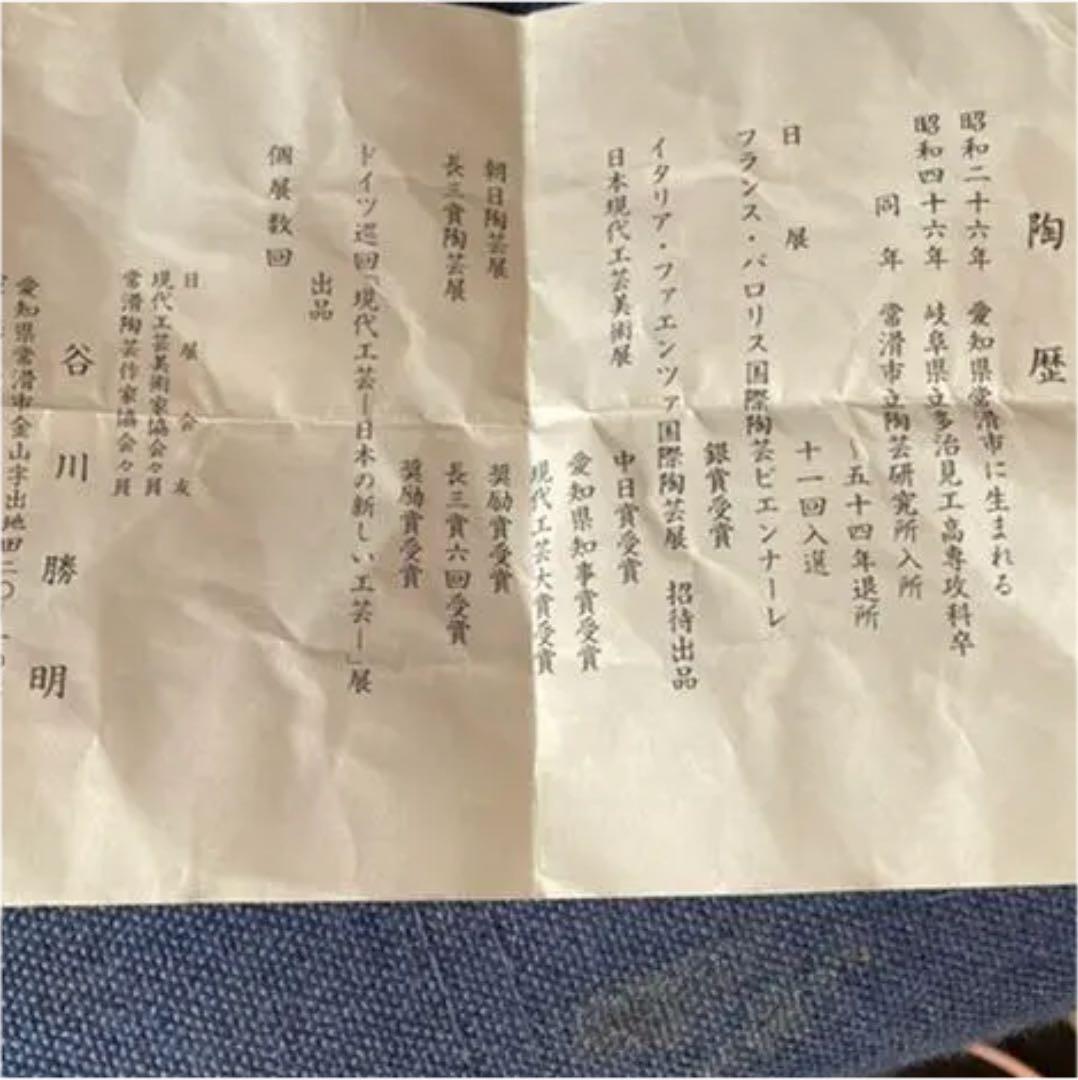 陶歴
昭和二十六年 愛知県常滑市に生まれる
昭和四十六年 岐阜県立多治見工高専攻科卒
同年 常滑市立陶芸研究所入所
〜五十四年退所
日展 十一回入選
フランス・バロリス国際陶芸ビエンナーレ
銀賞受賞
イタリア・ファエンツァ国際陶芸展 招待出品
日本現代工芸美術展 中日賞受賞
愛知県知事賞受賞
現代工芸大賞受賞
朝日陶芸展 奨励賞受賞
長三賞陶芸展 長三賞六回受賞
奨励賞受賞
ドイツ巡回「現代工芸―日本の新しい工芸―」展
出品
個展数回
日展会友
現代工芸美術家協会々員
常滑陶芸作家協会々員
谷川勝明
愛知県常滑市金山字出地田二〇